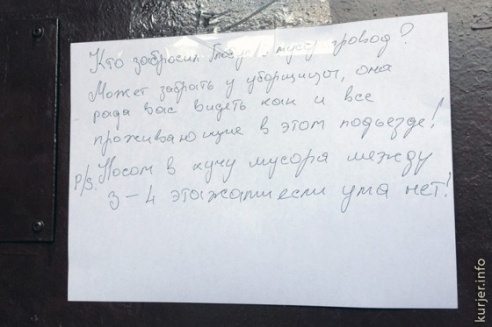 Кто забросил мусоропровод?
Может забрать у уборщицы, она
рада вас видеть как и все
проживающие в этом подъезде!
P/S. Носом в кучу мусора между
3-4 этажами если ума нет!
kurjer.info